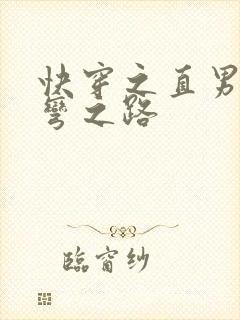 快穿之直男
彎之路
臨窗紗